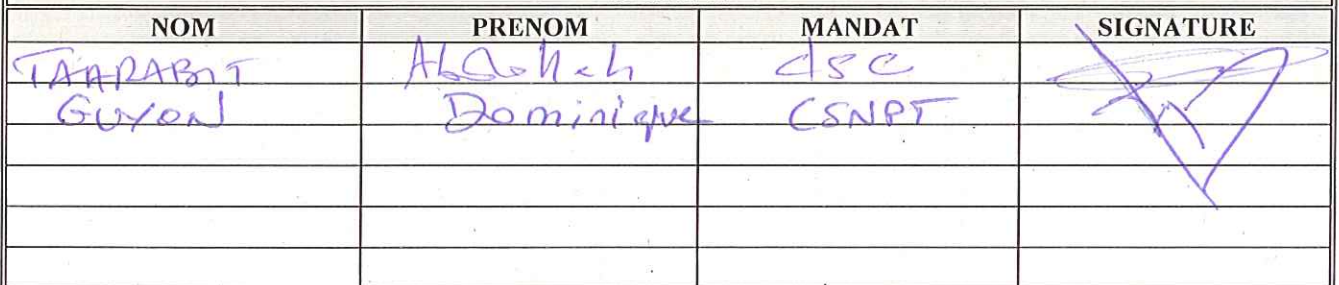 NOM PRENOM MANDAT SIGNATURE
TAARABIT Abdollah dsc
GUYON Dominique CSNPT